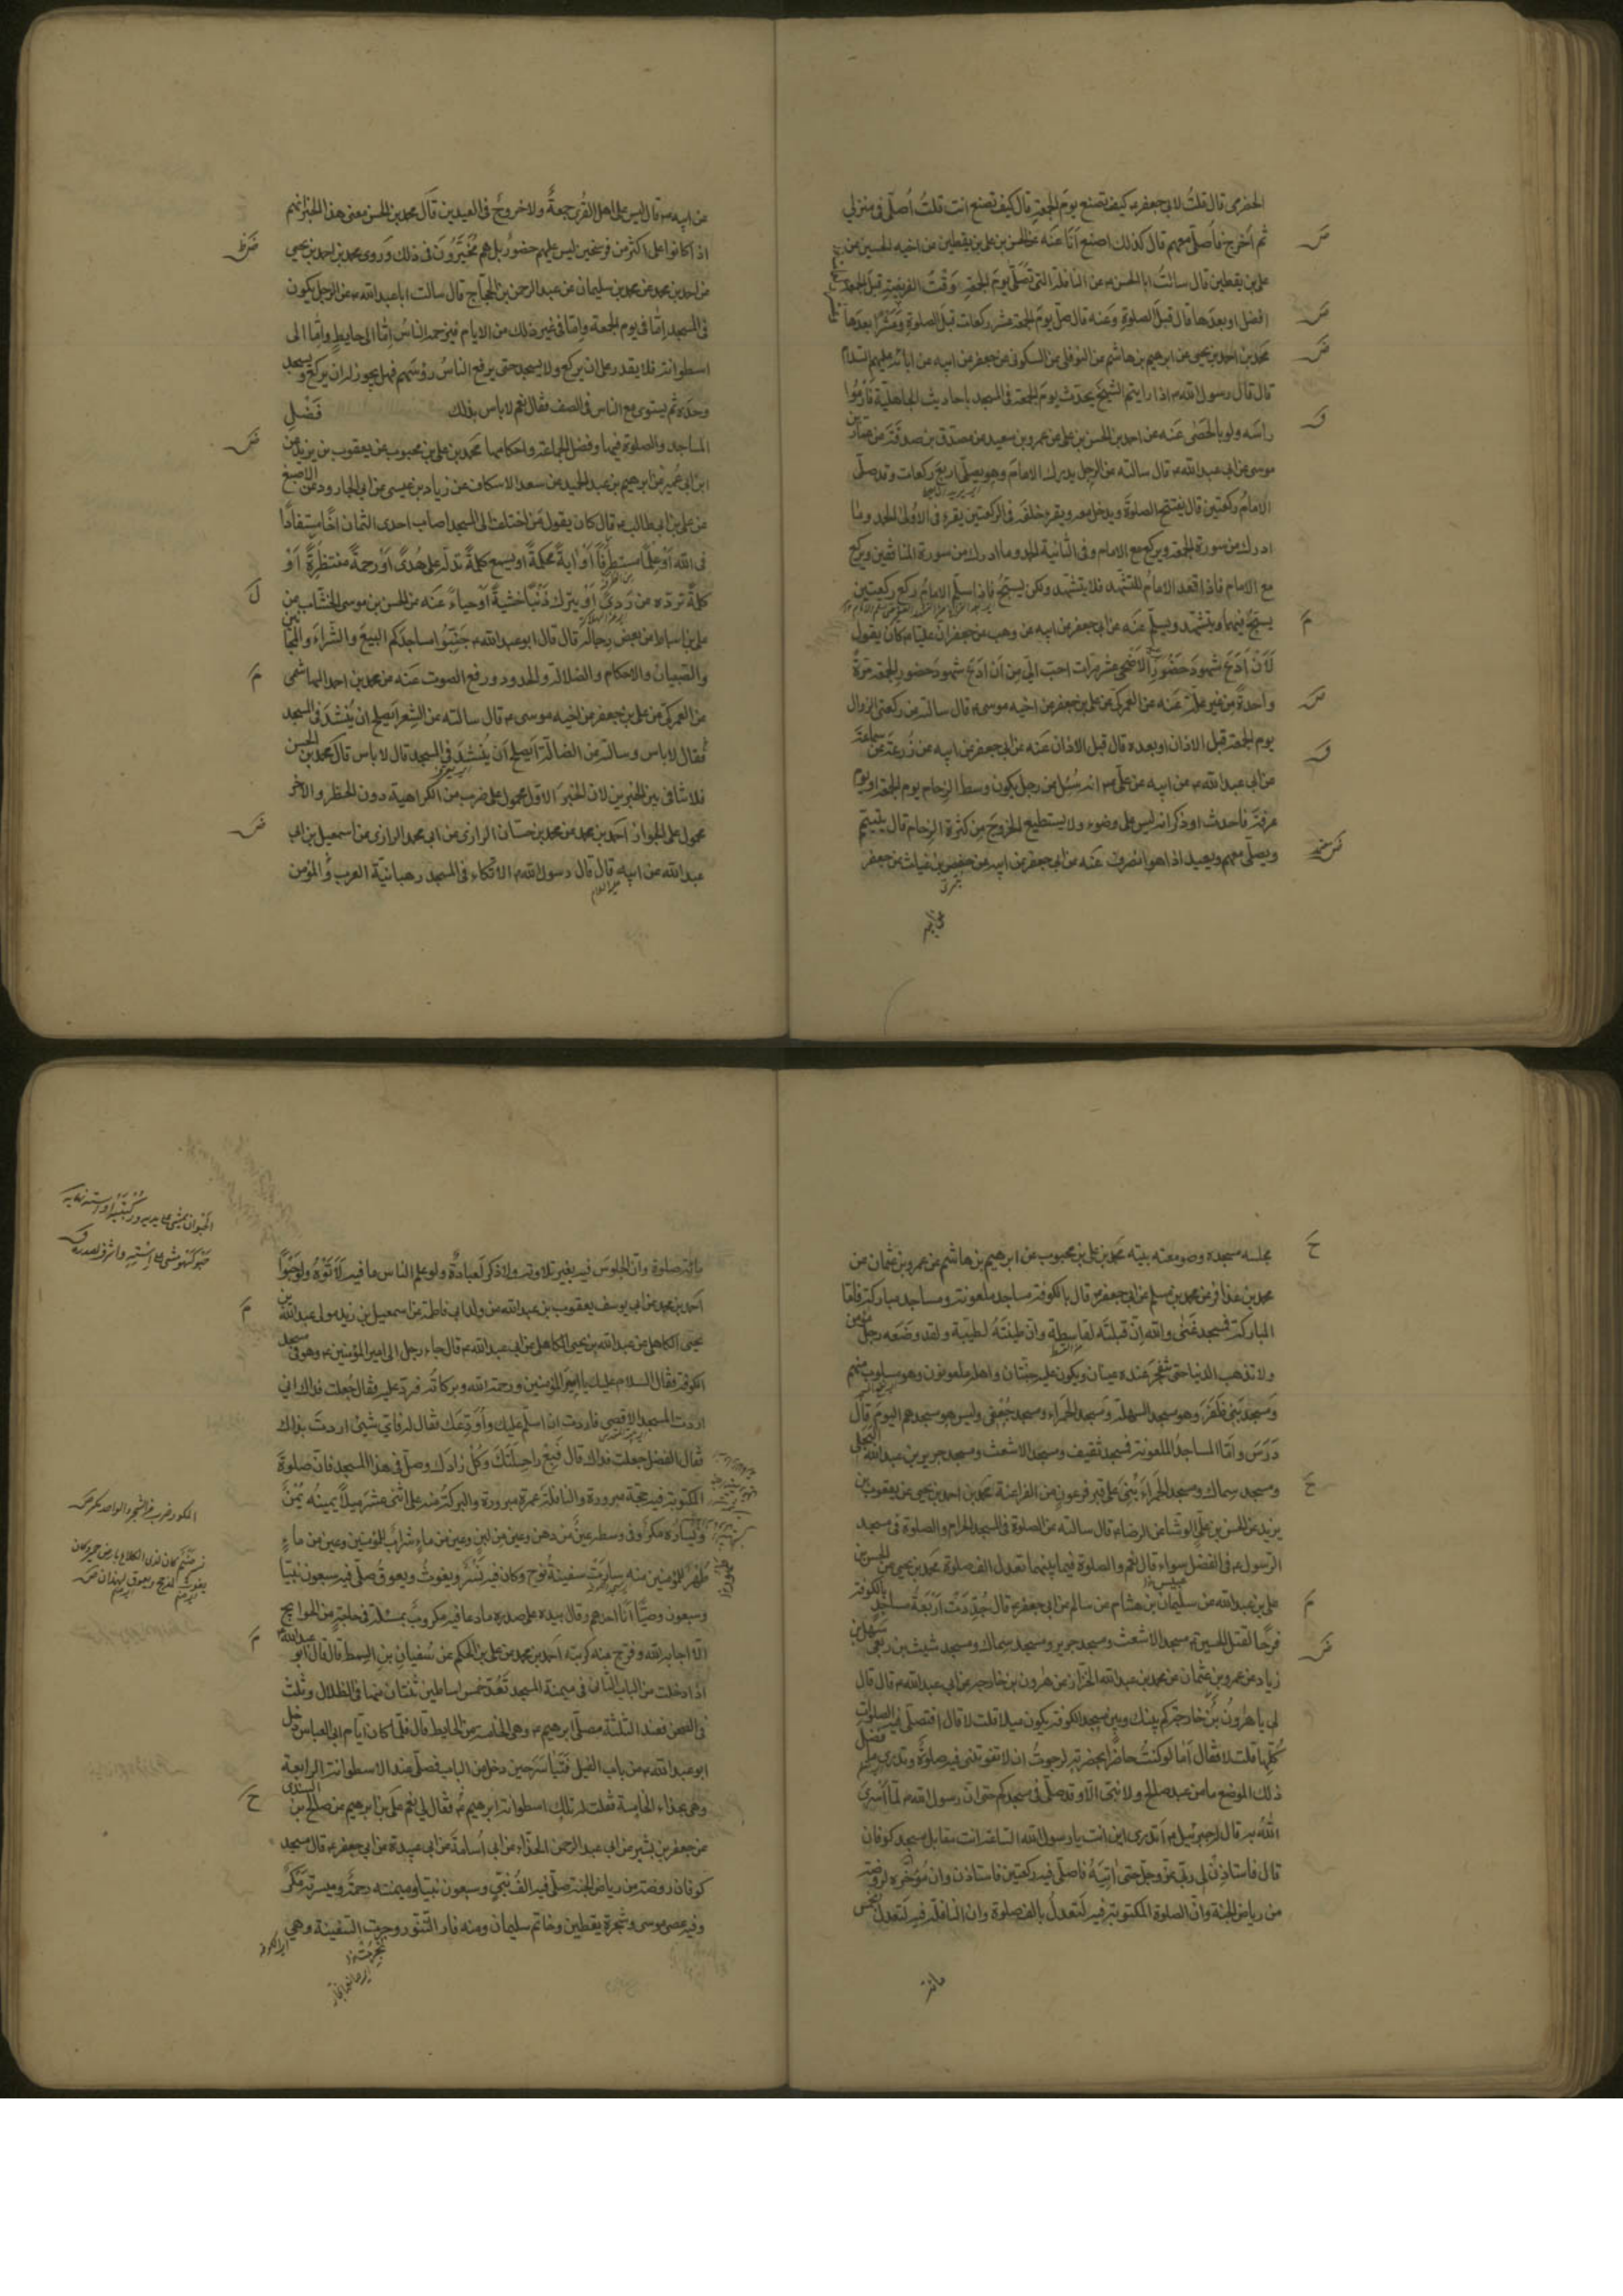 الحضرمى قال قلتُ لابى جعفر ع كيف تصنع يومَ الجمعةِ قال كيف تصنع انت قلتُ اُصلّى فى منزلى
ثم اَخرج فاُصلّى معهم قال كذلك اصنع اَنَا عَنْه عن الحسن بن على بن يقطين عن اخيه الحسين عن
على بن يقطين قال سالتُ ابا الحسن ع عن النافلة التى تصلّى يومَ الجمعةِ وَقْتَ الفريضةِ قبلَ الجمعة
افضل او بعدَها قال قبلَ الصلوةِ وعَنه قال صلّ يومَ الجمعة عشر ركعات قبلَ الصلوةِ وعَشْرًا بعدَها
محمد بن احمد بن يحيى عن ابرهيم بن هاشم عن النوفلى عن السكونى عن جعفر عن ابيه عن ابائه عليهم السلام
قال قال رسول الله ص اذا رايتم الشيخَ يحدّث يومَ الجمعة فى المسجد باحاديث الجاهليّة فَارْمُوا
راسَه ولو بالحَصٰى عَنه عن احمد بن الحسن بن على عن عمرو بن سعيد عن مصدّق بن صدقَة عن عمّار بن
موسى عن ابى عبد الله ع قال سالته عن الرجل يدرك الامامَ وهو يصلّى اربعَ ركعات وقد صلّى
الامامُ ركعتين قال يفتتح الصلوةَ ويدخل معه ويقرء خلفَه فى الركعتين يقرء فى الاُولى الحمد وما
ادرك من سورة الجمعة ويركع مع الامام وفى الثانية الحمد وما ادرك من سورة المنافقين ويركع
مع الامام فاذا قعد الامامُ للتشهّد فلا يتشهّد ولكن يسبّحُ فاذا سلّم الامامُ ركع ركعتين
يسبّحُ فيهما ويتشهّد ويسلّم عَنه عن ابى جعفر عن ابيه عن وهب عن جعفر ان عليا ع كان يقول
لَأَنْ أَدَعَ شهودَ حَضُورِ الاَضْحٰى عشر مرّات احبّ الىّ من اَنْ اَدَعَ شهودَ حضورِ الجمعة مرّةً
واحدةً من غير علّة عَنه عن العمركى عن على بن جعفر عن اخيه موسى ع قال سالته عن ركعتى الزوال
يوم الجمعة قبل الاذان او بعده قال قبل الاذان عَنه عن ابى جعفر عن ابيه عن زُرعَة عن سماعَة
عن ابى عبد الله ع عن ابيه عن علىّ ع انه سُئِل عن رجل يكون وسط الزحام يوم الجمعة او يوم
عرفَة فاحدث او ذكر انه ليس على وضوء ولا يستطيع الخروجَ من كثرة الزحام قال يتيمّم
ويصلّى معهم ويعيد اذا هو انصرف عَنه عن ابى جعفر عن ابيه عن حفص بن غياث عن جعفر
عن ابيه ع قال ليس على اهل القُرى جمعةٌ ولا خروجٌ فى العيدين قال محمد بن الحسن معنى هذا الخبر انهم
اذا كانوا على اكثر من فرسخين ليس عليهم حضورٌ بل هم مُخَيَّرُونَ فى ذلك ورَوى محمد بن احمد بن يحيى
عن احمد بن محمد عن محمد بن سليمان عن عبد الرحمن بن الحجّاج قال سالت ابا عبد الله ع عن الرجل يكون
فى المسجد اِمّا فى يوم الجمعة واِمّا فى غير ذلك من الايام فيزحمه الناسُ اِمّا الى حايطٍ واِمّا الى
اسطوانة فلا يقدر على ان يركع ولا يسجد حتى يرفع الناسُ رؤسَهم فهل يجوز له ان يركع ويسجد
وحدَه ثم يستوى مع الناس فى الصف فقال نعم لا باس بذلك فَضْلِ
المساجد والصلوة فيها وفضل الجماعة واحكامها محمد بن على بن محبوب عن يعقوب بن يزيد عن
ابن ابى عُمير عن ابرهيم بن عبد الحميد عن سعد الاسكاف عن زياد بن عيسى عن ابى الجارود عن الاصبغ
عن على بن ابى طالب ع قال كان يقول مَن اختلف الى المسجد اصاب احدى الثمان اَخًا مستفادًا
فى الله اَوْ علمًا مستطرفًا اَوْ اٰيةً محكمةً او يسمع كلمةً تدلّه على هُدىً اَوْ رحمةً منتظَرةً اَوْ
كلمةً تردّه عن رَدىً اَوْ يترك ذَنْبًا خشيةً اَوْ حياءً عَنه عن الحسن بن موسى الخشّاب عن
على بن اسباط عن بعض رجاله قال قال ابو عبد الله ع جَنِّبُوا مساجدَكم البيعَ والشِّراءَ والمجانين
والصبيان والاحكام والضالّة والحدود ورفع الصوت عَنه عن محمد بن احمد الهاشمى
عن العمركى عن على بن جعفر عن اخيه موسى ع قال سالته عن الشِعر اَيصلح ان يُنْشَدَ فى المسجد
فقال لا باس وسالته عن الضالّة اَيصلح اَنْ يُنْشَدَ فى المسجد قال لا باس قال محمد بن الحسن
فلا تنافى بين الخبرين لان الخبرَ الاوّل محمول على ضرب من الكراهية دون الحظر والاخر
محمول على الجواز احمد بن محمد عن محمد بن حسّان الرازى عن ابى محمد الرازى عن اسمعيل بن ابى
عبد الله عن ابيه ع قال قال رسول الله ص الاتّكاء فى المسجد رهبانيّة العرب والمؤمن
مجلسه مسجده وصومعته بيته محمد بن على بن محبوب عن ابرهيم بن هاشم عن عمرو بن عثمان عن
محمد بن عذافر عن محمد بن مسلم عن ابى جعفر ع قال بالكوفة مساجد ملعونة ومساجد مباركة فامّا
المباركة فمسجد غَنٰى والله اِنّ قبلتَه لقاسِطة وان طينتَهُ لطيّبة ولقد وضَعه رجلٌ مؤمن
ولا تذهب الدنيا حتى تنفجرَ عنده عينان ويكون عليه جنّتان واهله ملعونون وهو مسلوب منهم
ومسجد بَنى ظفَرَ وهو مسجد السهلة ومسجد الحَمراء ومسجد جُعْفى وليس هو مسجدهم اليوم قال
دَرَسَ وامّا المساجدُ الملعونة فمسجد ثقيف ومسجد الاشعث ومسجد جرير بن عبد الله البجلى
ومسجد سِماك ومسجد الحَمراء بُنِىَ على قبر فرعون من الفراعنة محمد بن احمد بن يحيى عن يعقوب بن
يزيد عن الحسن بن علىّ الوشّا عن الرضا ع قال سالته عن الصلوة فى المسجد الحرام والصلوة فى مسجد
الرسول ص فى الفضل سواء قال نعم والصلوة فيما بينهما تعدل الف صلوة محمد بن يحيى عن الحسن بن
على بن عبد الله عن سليمان بن هشام عن سالم عن ابى جعفر ع قال جُدِّدَتْ اَرْبَعَةُ مساجدَ بالكوفة
فرحًا لقتل الحسين ع مسجد الاشعث ومسجد جرير ومسجد سِماك ومسجد شبث بن ربعى سهل بن
زياد عن عمرو بن عثمان عن محمد بن عبد الله الخزّاز عن هٰرون بن خارجه عن ابى عبد الله ع قال قال
لى يا هٰرونُ بن خارجة كم بينك وبين مسجد الكوفة يكون ميلا قلت لا قال اَفتصلّى فيه الصلوات
كُلّها قلت لا فقال اَما لو كنتُ حاضرًا بحضرته لرجوتُ ان لا تفوتنى فيه صلوةٌ وتدرى ما فضل
ذلك الموضع ما من عبد صالح ولا نبىّ الّا وقد صلّى فى مسجدكم حتى انّ رسول الله ص لمّا اَسرىَ
اللهُ به قال له جبرئيل ع اَتدرى اين انت يا رسول الله الساعة انت مقابل مسجد كوفان
قال فاستاذِنْ لى ربّى عزّ وجلّ حتى اٰتِيَهُ فاصلّى فيه ركعتين فاستاذن وان مُؤخّرَه لروضة
من رياض الجنّة وانّ الصلوةَ المكتوبة فيه لَتعدلُ بالف صلوة وان النافلة فيه لَتعدلُ بخمس
مائة
مائة صلوة وانّ الجلوسَ فيه بغير تلاوة ولا ذكر لَعبادةٌ ولو علم الناس ما فيه لَاَتَوْهُ ولو حَبْوًا
احمد بن محمد عن ابى يوسف يعقوب بن عبد الله من ولد ابى فاطمة عن اسمعيل بن زيد مولى عبد الله بن
يحيى الكاهلى عن عبد الله بن يحيى الكاهلى عن ابى عبد الله ع قال جاء رجل الى امير المؤمنين ع وهو فى مسجد
الكوفة فقال السلام عليك يا امير المؤمنين ورحمة الله وبركاته فردّ عليه فقال جُعلت فداك انى
اردت المسجد الاقصى فاردت ان اسلّم عليك واُوَدِّعَك فقال له فاىّ شىء اردت بذلك
فقال الفضل جعلت فداك قال فَبِعْ راحلَتَكَ وكُلْ زادَك وصلّ فى هذا المسجد فانّ صلوةَ
المكتوبة فيه حجّة مبرورة والنافلة عمرة مبرورة والبركةُ منه على اثنى عشر ميلاً يمينُه يُمْنٌ
ويسارُه مكرٌ وفى وسطه عينٌ من دهن وعين من لبن وعين من ماءٍ شرابٌ للمؤمنين وعين من ماءٍ
طُهْرٌ للمؤمنين منه سارت سفينةُ نوح وكان فيه نَسْرٌ ويغوثُ ويعوقُ صلّى فيه سبعون نبيّا
وسبعون وصيًّا اَنَا احدهم وقال بيده على صدره ما دعا فيه مكروبٌ بمسئلة فى حاجة من الحوايج
الّا اجابه الله وفرّج عنه كربته احمد بن محمد عن على بن الحكم عن سُفيانِ بنِ السِمط قال قال ابو عبد الله
اذا دخلت من الباب الثانى فى ميمنة المسجد تَعُدّ خمس اساطين ثنتان منها فى الظلال وثلث
فى الصحن فعند الثالثة مصلّى ابرهيم ع وهى الخامسة من الحايط قال فلمّا كان ايام ابى العباس دخل
ابو عبد الله ع من باب الفيل فتياسَرَ حين دخل من الباب فصلّى عند الاسطوانة الرابعة
وهى بحذاء الخامسة فقلت له تلك اسطوانة ابرهيم ع فقال لى نعم على بن ابرهيم عن صالح بن السندى
عن جعفر بن بشير عن ابى عبد الرحمن الحذّاء عن ابى اُسامةَ عن ابى عبيدة عن ابى جعفر ع قال مسجد
كوفان روضة من رياض الجنة صلّى فيه الفُ نبىّ وسبعون نبيّا وميمنته رحمةٌ وميسرته مَكْرٌ
وفيه عصى موسى وشجرةُ يقطين وخاتم سليمان ومنه فار التنّور وجرت السفينة وهى